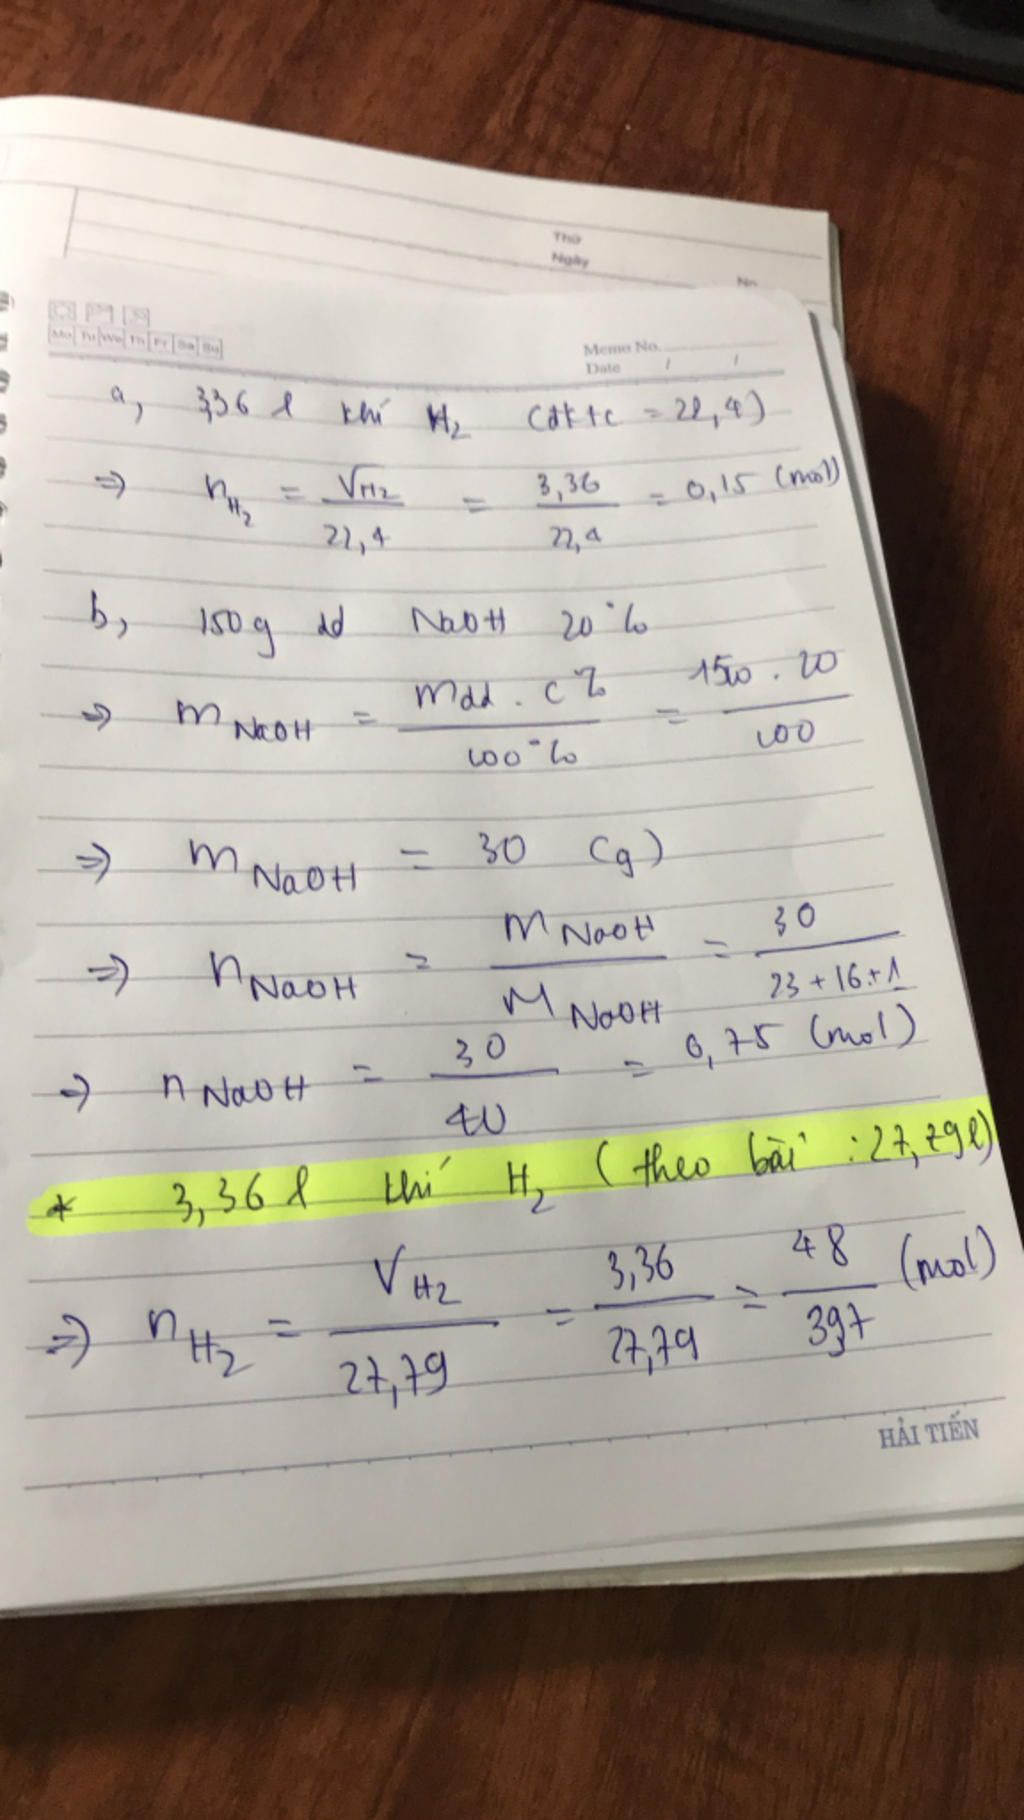 Thứ
Ngày
No
Mo Tu We Th Fr Sa Su
Memo No.
Date / /
a, 3,36 l khí H₂ (đktc = 22,4)
⇒ n_H₂ = V_H₂ / 22,4 = 3,36 / 22,4 = 0,15 (mol)
b, 150g dd NaOH 20%
⇒ m_NaOH = mdd . C% / 100% = 150 . 20 / 100
⇒ m_NaOH = 30 (g)
⇒ n_NaOH = m_NaOH / M_NaOH = 30 / 23 + 16 + 1
⇒ n_NaOH = 30 / 40 = 0,75 (mol)
* 3,36 l khí H₂ (theo bài : 27,79l)
⇒ n_H₂ = V_H₂ / 27,79 = 3,36 / 27,79 = 48 / 397 (mol)
HẢI TIẾN